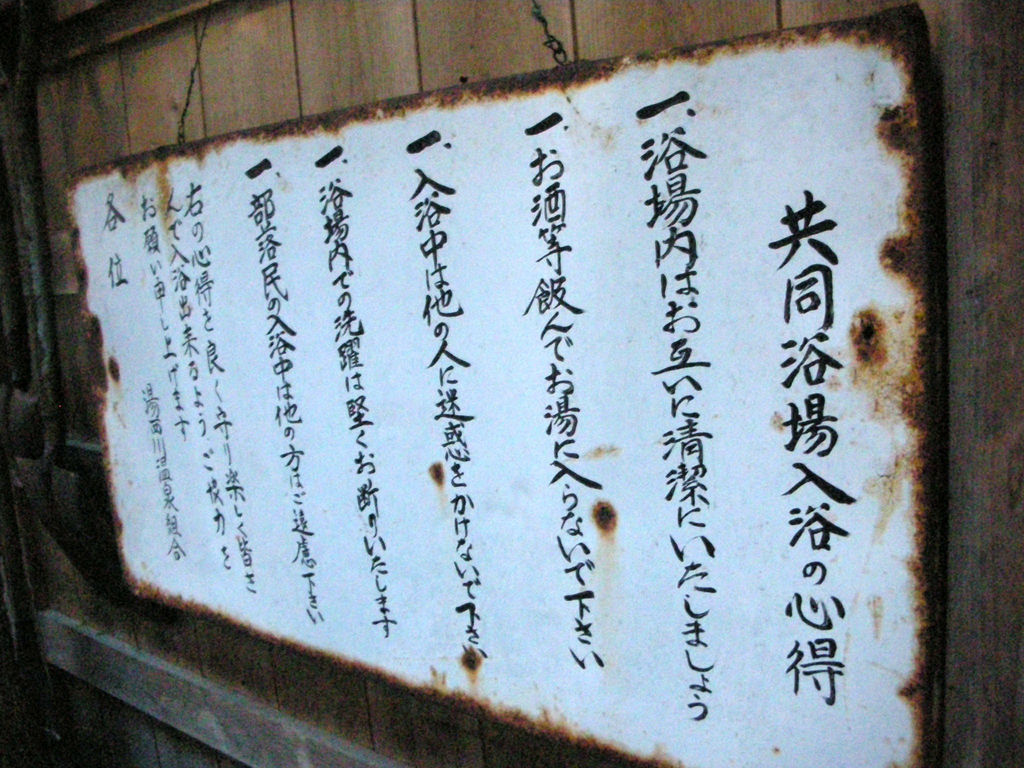 共同浴場入浴の心得
一、浴場内はお互いに清潔にいたしましょう
一、お酒等飯んでお湯に入らないで下さい
一、入浴中は他の人に迷惑をかけないで下さい
一、浴場内での洗濯は堅くお断りいたします
一、部落民の入浴中は他の方はご遠慮下さい
右の心得を良く守り楽しく皆さ
んで入浴出来るようご協力を
お願い申し上げます
湯西川温泉組合
各位